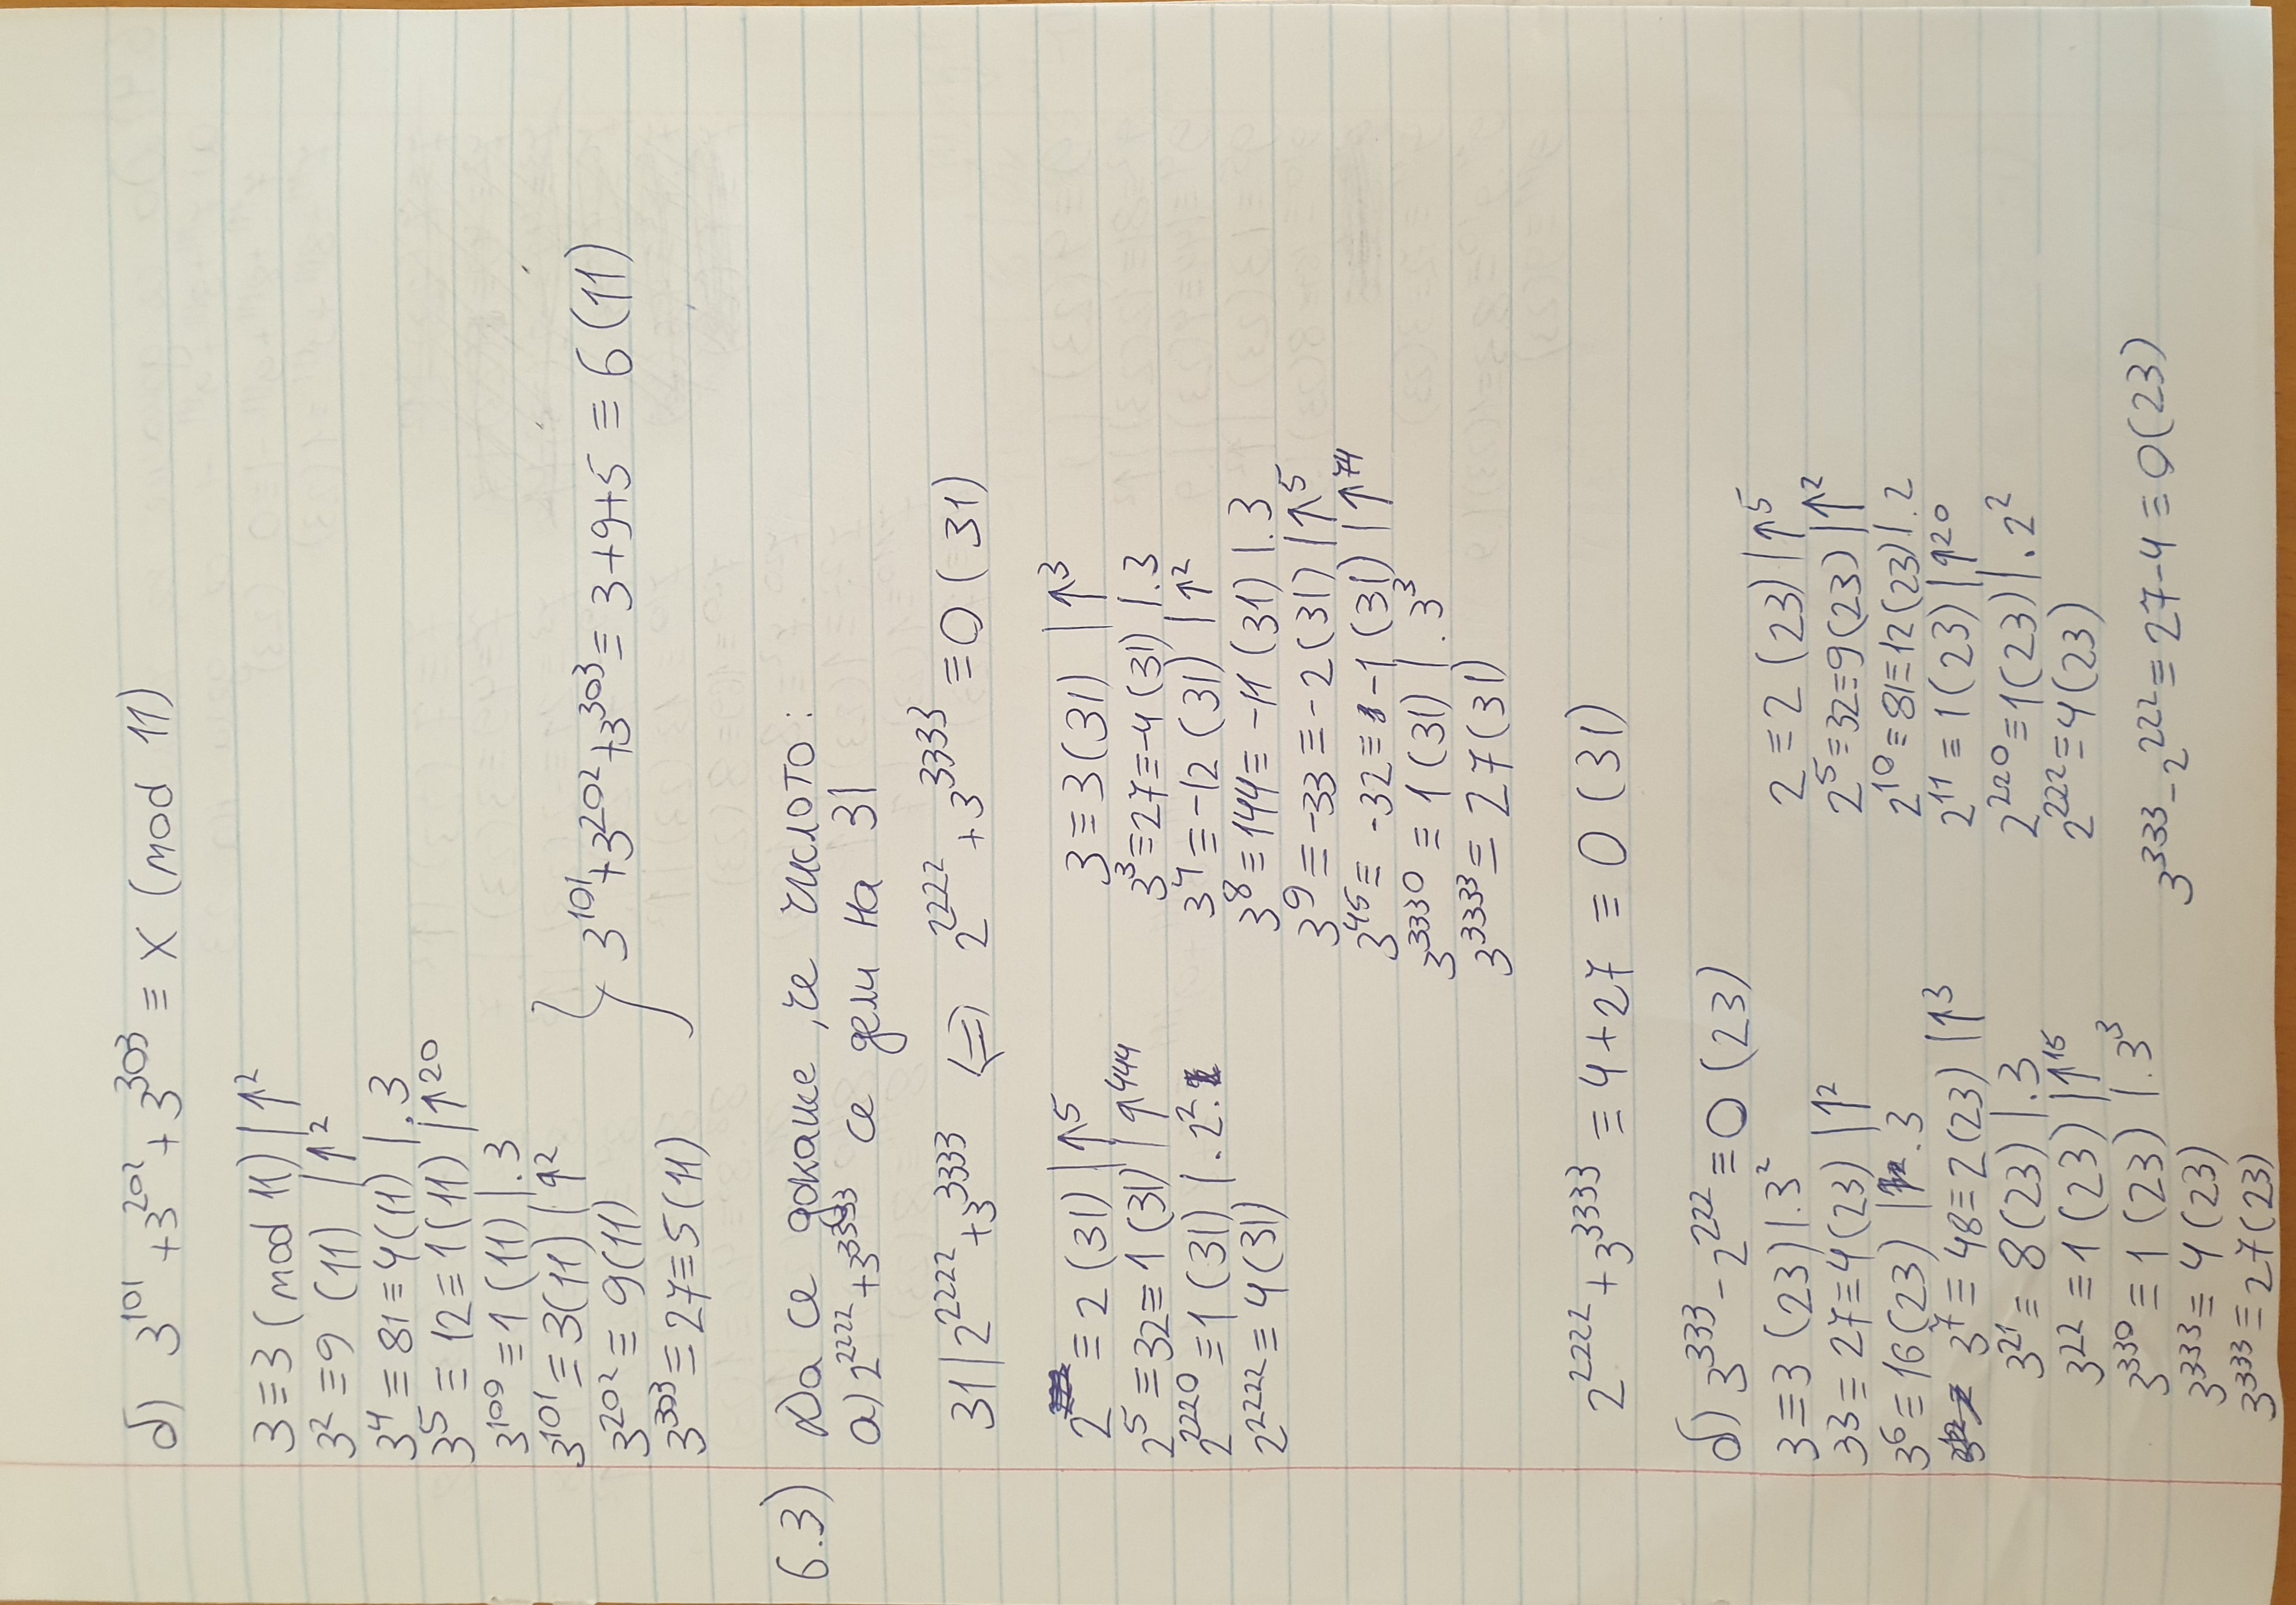 б) 3^101 + 3^202 + 3^303 ≡ x (mod 11)
3 ≡ 3 (mod 11) | ↑^2
3^2 ≡ 9 (11) | ↑^2
3^4 ≡ 81 ≡ 4 (11) | . 3
3^5 ≡ 12 ≡ 1 (11) | ↑^20
3^100 ≡ 1 (11) | . 3
3^101 ≡ 3 (11) | ↑^2
3^202 ≡ 9 (11)
3^303 ≡ 27 ≡ 5 (11)
} 3^101 + 3^202 + 3^303 ≡ 3 + 9 + 5 ≡ 6 (11)
6.3) Да се докаже, че числото:
а) 2^2222 + 3^3333 се дели на 31
31 | 2^2222 + 3^3333 ⟺ 2^2222 + 3^3333 ≡ 0 (31)
2 ≡ 2 (31) | ↑^5
2^5 ≡ 32 ≡ 1 (31) | ↑^444
2^2220 ≡ 1 (31) | . 2^2
2^2222 ≡ 4 (31)
3 ≡ 3 (31) | ↑^3
3^3 ≡ 27 ≡ -4 (31) | . 3
3^4 ≡ -12 (31) | ↑^2
3^8 ≡ 144 ≡ -11 (31) | . 3
3^9 ≡ -33 ≡ -2 (31) | ↑^5
3^45 ≡ -32 ≡ -1 (31) | ↑^74
3^3330 ≡ 1 (31) | . 3^3
3^3333 ≡ 27 (31)
2^2222 + 3^3333 ≡ 4 + 27 ≡ 0 (31)
б) 3^333 - 2^222 ≡ 0 (23)
3 ≡ 3 (23) | . 3^2
3^3 ≡ 27 ≡ 4 (23) | ↑^2
3^6 ≡ 16 (23) | . 3
3^7 ≡ 48 ≡ 2 (23) | ↑^3
3^21 ≡ 8 (23) | . 3
3^22 ≡ 1 (23) | ↑^15
3^330 ≡ 1 (23) | . 3^3
3^333 ≡ 4 (23)
3^333 ≡ 27 (23)
2 ≡ 2 (23) | ↑^5
2^5 ≡ 32 ≡ 9 (23) | ↑^2
2^10 ≡ 81 ≡ 12 (23) | . 2
2^11 ≡ 1 (23) | ↑^20
2^220 ≡ 1 (23) | . 2^2
2^222 ≡ 4 (23)
3^333 - 2^222 ≡ 27 - 4 ≡ 0 (23)